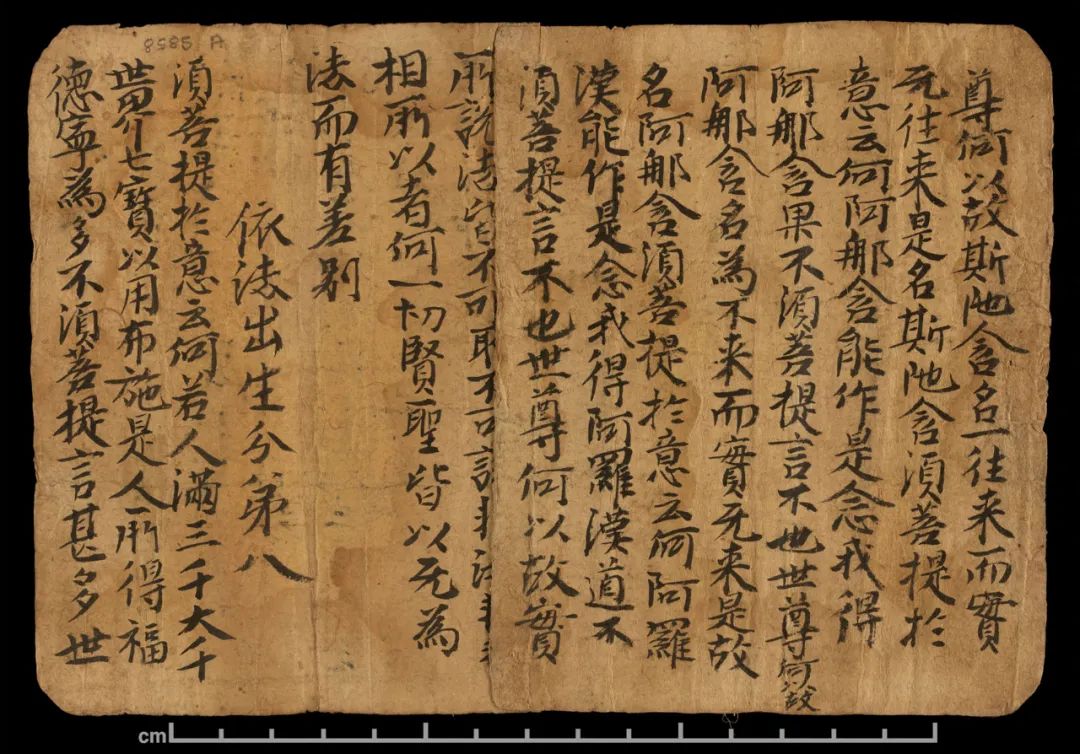 尊何以故斯陁含名一往来而實
无往来是名斯陁含須菩提扵
意云何阿那含能作是念我得
阿那含果不須菩提言不也世尊何以故
阿那含名為不来而實无来是故
名阿那含須菩提扵意云何阿羅
漢能作是念我得阿羅漢道不
須菩提言不也世尊何以故實
所說法皆不可取不可說非法非
相所以者何一切賢聖皆以无為
法而有差别
依法出生分苐八
須菩提扵意云何若人滿三千大千
世界七寶以用布施是人所得福
德寧為多不須菩提言甚多世
8585 A
cm